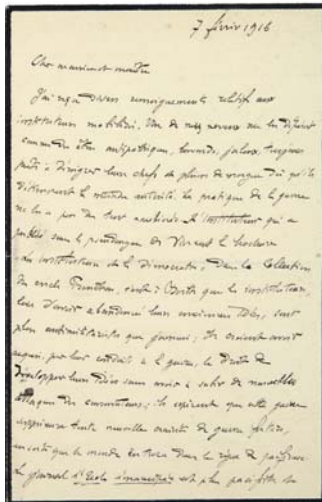 7 février 1916
Cher monsieur et maître
J'ai reçu divers renseignements relatifs aux
instituteurs mobilisés. Un de mes neveux me les dépeint
comme des êtres antipathiques, jaloux, toujours
prêts à dénigrer leurs chefs et pleins de dès qu'ils
autorité. La pratique de la guerre
ne les a pas du tout améliorés. L'instituteur qui a
publié sous le pseudonyme de la brochure
Les instituteurs et la Démocratie, dans la Collection
du écrit à que les instituteurs,
loin d'avoir abandonné leurs anciennes idées, sont
plus antimilitaristes que jamais; ils croient avoir
acquis, par leur conduite à la guerre, le droit de
développer leurs idées sans avoir à subir de nouvelles
attaques des conservateurs; ils espèrent que cette guerre
supprimera toute nouvelle crainte de guerre future,
en sorte que le monde entrera dans le règne du pacifisme.
Le journal l'École est plus pacifiste